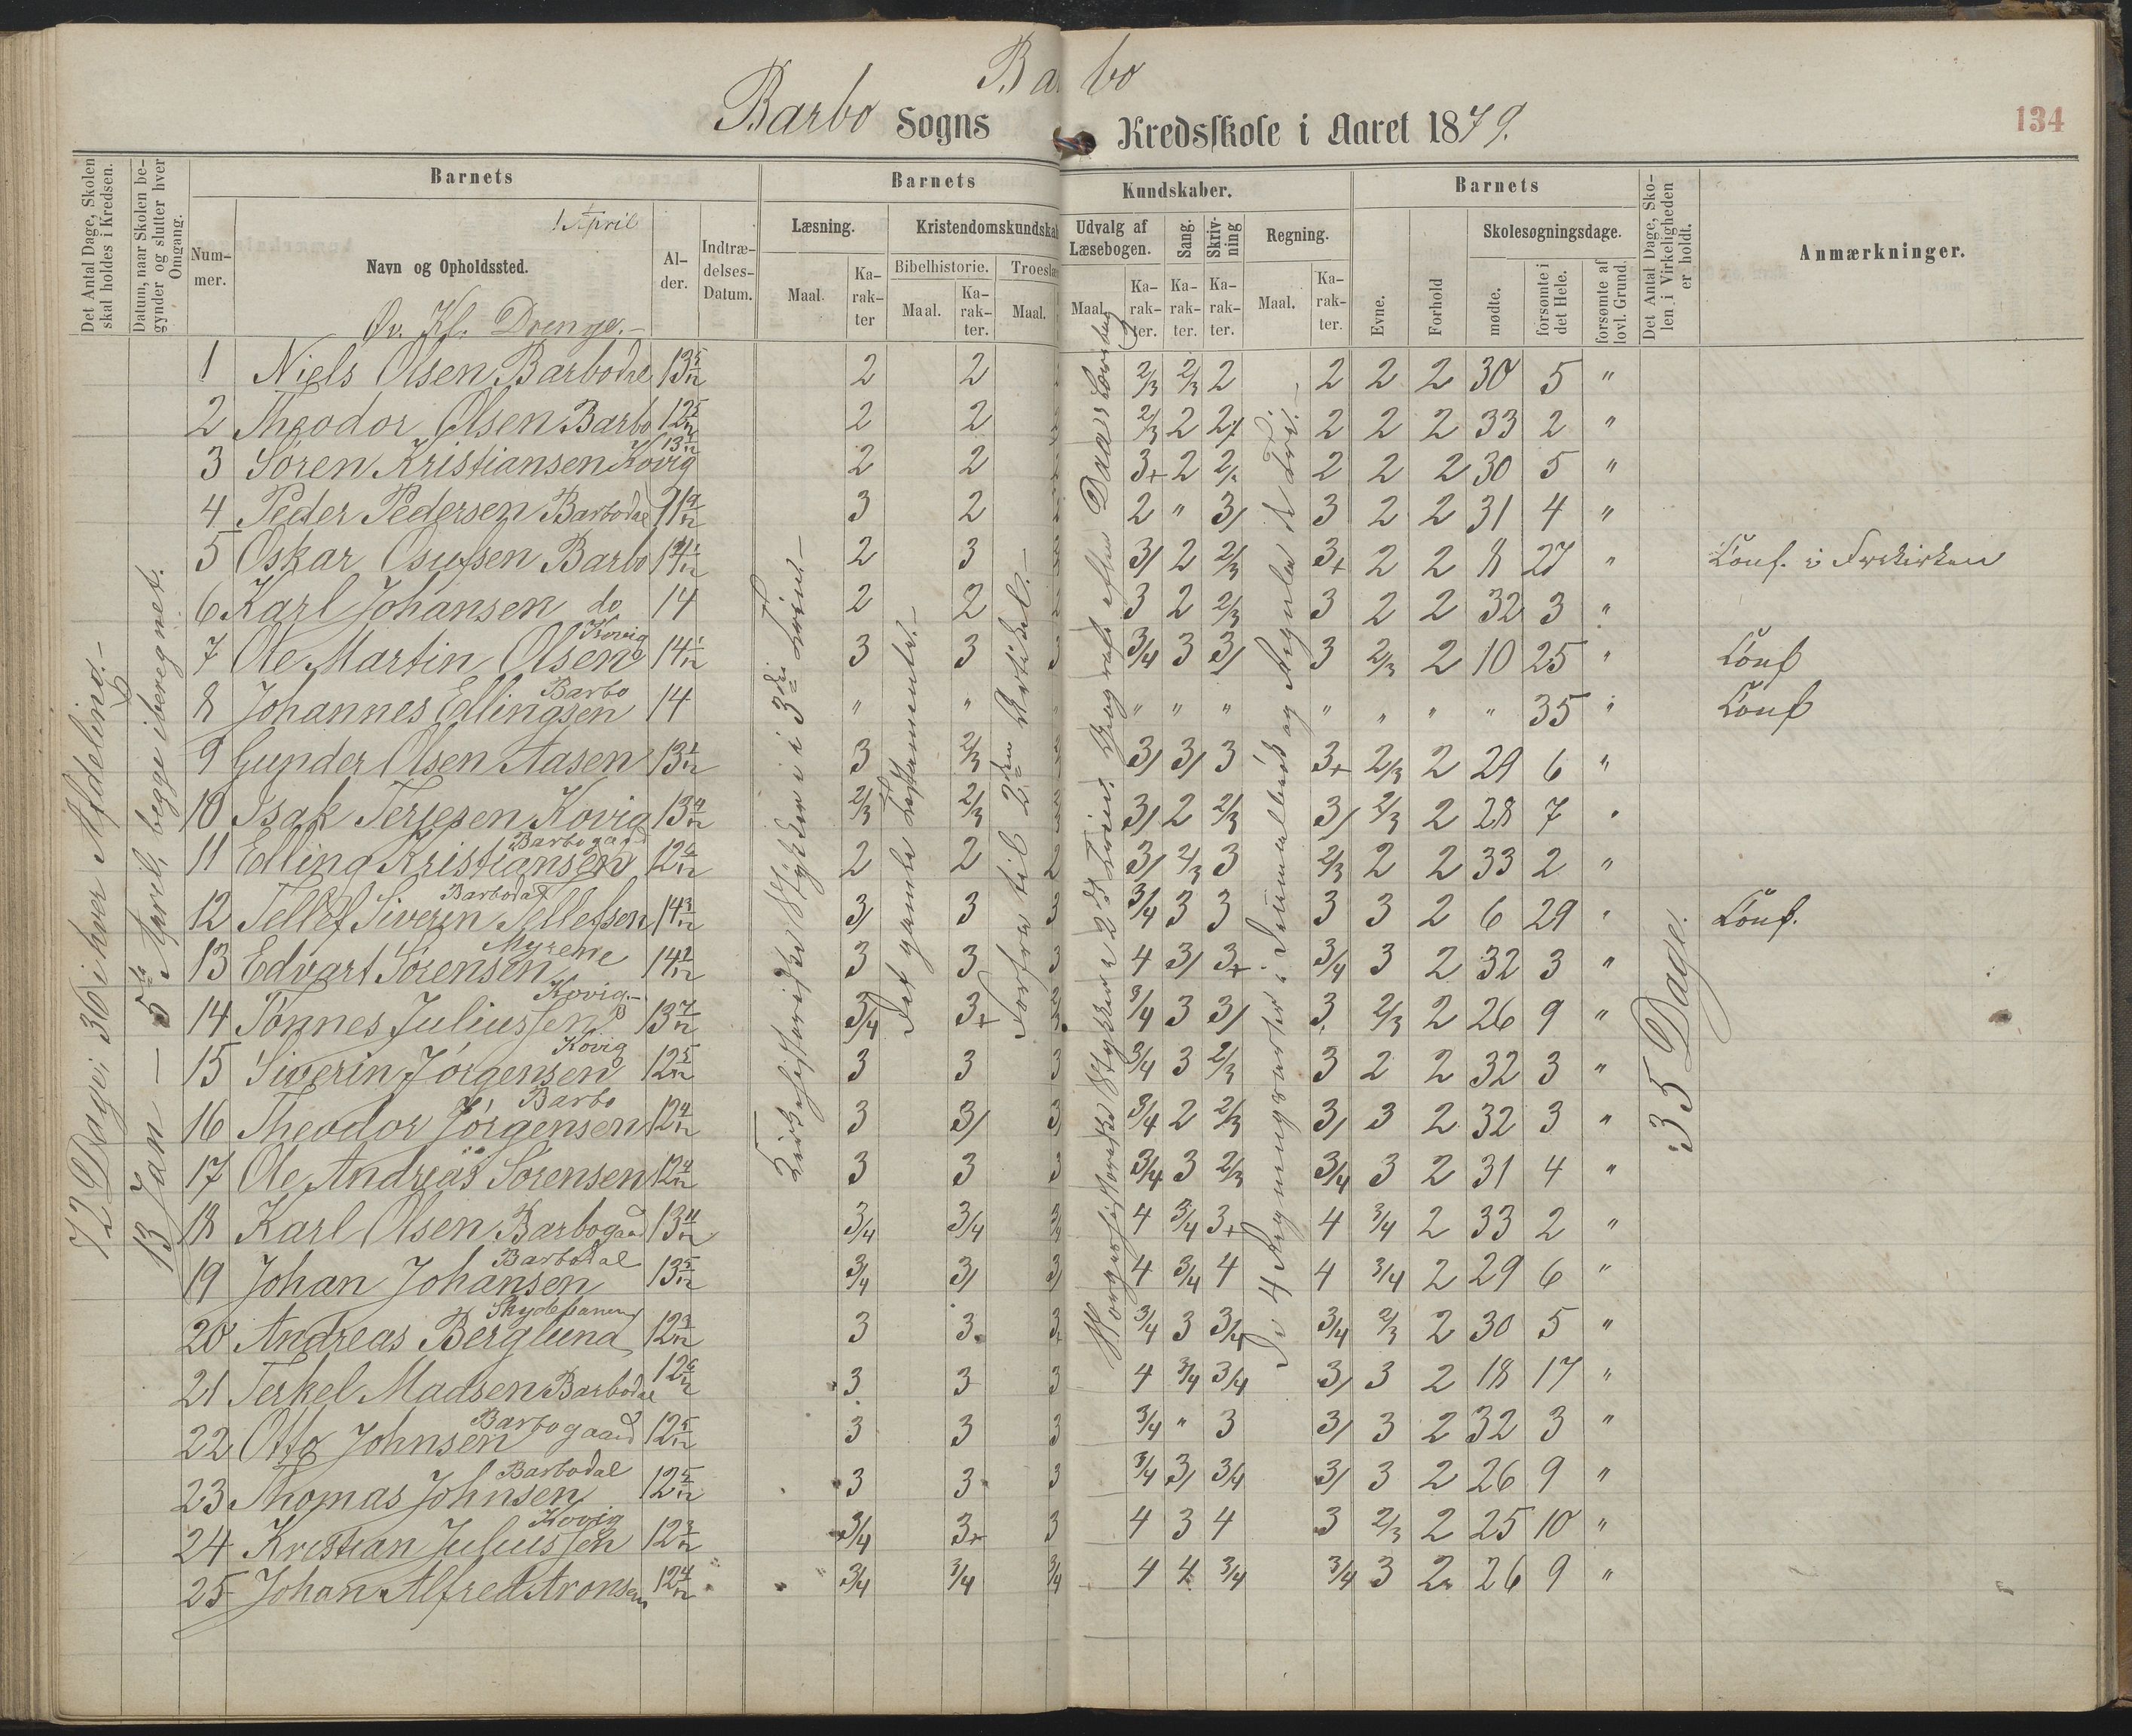 Barbo
Barbo Sogns Kredsskole i Aaret 1879.
134
Det Antal Dage, Skolen skal holdes i Kredsen.
Datum, naar Skolen begynder og slutter hver Omgang.
Barnets
Nummer.
Navn og Opholdssted.
1 April
Øv. Kl. Drenge.
Alder.
Indtrædelses-Datum.
Barnets Kundskaber.
Læsning.
Maal.
Karakter
Kristendomskundskab
Bibelhistorie.
Maal.
Karakter.
Troeslæ
Maal.
Udvalg af Læsebogen.
Maal.
Karakter.
Sang.
Karakter.
Skrivning
Karakter.
Regning.
Maal.
Karakter.
Barnets
Evne.
Forhold
Skolesøgningsdage.
mødte.
forsømte i det Hele.
forsømte af lovl. Grund.
Det Antal Dage, Skolen i Virkeligheden er holdt.
Anmærkninger.
72 Dage: 36 i hver Afdeling.
13 Jan — 5te April, begge iberegnet.
Kirkehistoriske Stykker i 3die Trin.
Det gamle Testamente.
Forfra til 2den Artikel.
De 4 Regningsarter i
35 Dage.
1 Niels Olsen Barbodal 13 5/12 2 2 2/3 2/3 2 2 2 2 30 5 "
2 Theodor Olsen Barbo 12 5/12 2 2 2/3 2 2/ 2 2 2 33 2 "
3 Soren Kristiansen Kovig 2 2 3+ 2 2/3 2 2 2 30 5 "
4 Peder Pedersen Barbodal 3 2 2 " 3/ 3 2 2 31 4 "
5 Oskar Osufsen Barbo 2 3 3/ 2 2/3 3+ 2 2 8 27 " Conf. i Frikirken
6 Karl Johansen do 14 2 2 3 2 2/3 3 2 2 32 3 "
7 Ole Martin Olsen Kovig 14 1/12 3 3 3 3/4 3 3/ 3 2/3 2 10 25 " Conf
8 Johannes Ellingsen Barbo 14 " " " " " " " " " 35 " Conf
9 Gunder Olsen Aasen 13 1/12 3 2/3 3/ 3/ 3 3+ 2/3 2 29 6 "
10 Isak Terjesen Kovig 13 9/12 2/3 2/3 3/ 2 2/3 3/ 2/3 2 28 7 "
11 Elling Kristiansen Barbogaard 2 2 2 3/ 2/3 3 2/3 2 2 33 2 "
12 Tellef Siverin Tellefsen Barbodal 14 3/12 3/ 3 3 3/4 3 3 3 3 2 6 29 " Conf.
13 Edvart Sorensen Myrene 14 2/12 3 3 3 4 3/ 3+ 3/4 3 2 32 3 "
14 Tönnes Juliussen Kovig 13 7/12 3/4 3+ 3/4 3 3/ 3 2/3 2 26 9 "
15 Siverin Jörgensen Kovig 12 5/12 3 3 3 3/4 3 2/3 3 2 2 32 3 "
16 Theodor Jörgensen Barbo 3 3/ 3 3/4 2 2/3 3/ 3 2 32 3 "
17 Ole Andreas Sorensen 3 3 3 3/4 3 2/3 3/4 3 2 31 4 "
18 Karl Olsen Barbogaard 13 11/12 3/4 3/4 4 3/4 3+ 4 3/4 2 33 2 "
19 Johan Johansen Barbodal 13 5/12 3/4 3/ 3/ 4 3/4 4 4 3/4 2 29 6 "
20 Andreas Berglund 12 3/12 3 3 3+ 3/4 3 3/4 3/4 2/3 2 30 5 "
21 Terkel Madsen Barbodal 3 3 3 4 3/4 3/4 3/ 3 2 18 17 "
22 Otto Johnsen Barbogaard 12 5/12 3 3 3 3/4 " 3 3/ 3 2 32 3 "
23 Thomas Johnsen Barbodal 12 5/12 3 3 3 3/4 3/ 3/4 3/ 3 2 26 9 "
24 Kristian Juliussen Kovig 12 3/12 3/4 3+ 3 4 3 4 3 2/3 2 25 10 "
25 Johan Alfred Aronsen 12 4/12 3/4 3/4 3/4 4 4 3/4 3/4 3 2 26 9 "